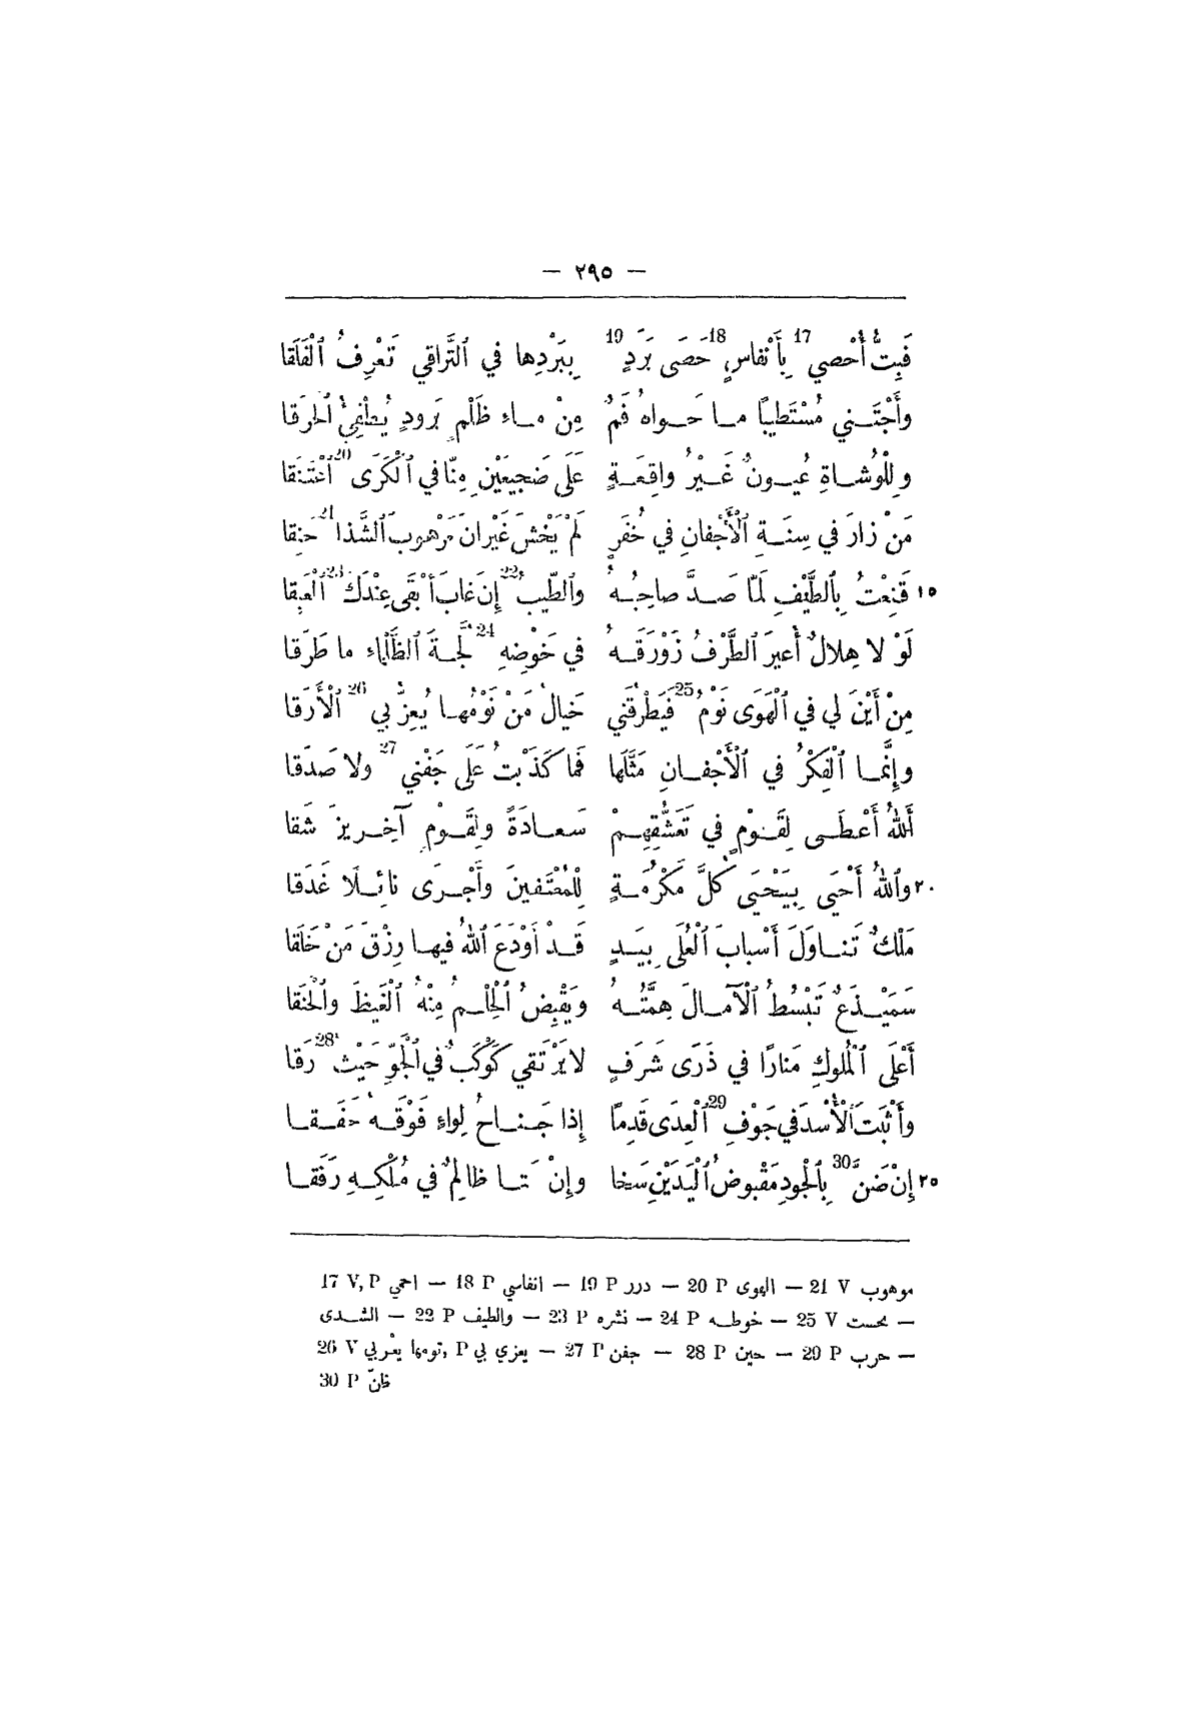 — ٢٩٥ —
فَبِتُّ أُحْصي 17 بِأَنْفاسٍ 18 حَصَى بَرَدٍ 19 بِبَرْدِها في ٱلتَّراقي تَعْرِفُ ٱلْفَلَقا
وأَجْتَـني مُسْتَطيبًا مـا حَـواهُ فَمٌ مِنْ مـاءِ ظَلْمٍ بَرودٍ يُطْفِئُ ٱلحَرَقا
ولِلْوُشـاةِ عُيـونٌ غَـيْرُ واقِعَـةٍ عَلَى ضَجيعَيْنِ مِنّا في ٱلْكَرَى 20 ٱعْتَنَقا
مَنْ زارَ في سِنَـةِ ٱلْأَجْفانِ في خُفَرٍ لَمْ يَخْشَ غَيْرانَ مَرْهوبَ ٱلشَّذا 21 حَنِقا
١٥ قَنِعْتُ بِٱلطَّيْفِ لَمّا صَـدَّ صاحِبُـهُ والطّيبُ 22 إِن غابَ أَبْقَى عِنْدَكَ 23 ٱلْعَبِقا
لَوْ لا هِلالٌ أُعيرَ ٱلطَّرْفُ زَوْرَقَـهُ في خَوْضِهِ 24 لُجَّـةَ ٱلظَّلْماءِ ما طَرَقا
مِنْ أَيْنَ لي في ٱلْهَوَى نَوْمٌ 25 فَيَطْرُقَني خَيالُ مَنْ نَوْمُهـا يُعِزُّ بي 26 ٱلْأَرَقا
وإِنَّمـا ٱلْفِكْرُ في ٱلْأَجْفـانِ مَثَّلَها فَما كَذَبْتُ عَلَى جَفْني 27 ولا صَدَقا
أَللهُ أَعْطَـى لِقَـوْمٍ في تَعَشُّقِهِـمْ سَعـادَةً ولِقَـوْمٍ آخَـريـنَ شَقا
٢٠ وٱللهُ أَحْيَى بِيَحْيَى كُلَّ مَكْرُمَـةٍ لِلْمُعْتَفينَ وأَجْـرَى نائِـلًا غَدَقا
مَلْكٌ تَنـاوَلَ أَسْبابَ ٱلْعُلَى بِيَـدٍ قَـدْ أَوْدَعَ ٱللهُ فيهـا رِزْقَ مَنْ خَلَقا
سَمَيْـذَعٌ تَبْسُطُ ٱلْآمـالَ هِمَّتُـهُ ويَقْبِضُ ٱلْحِلْـمُ مِنْهُ ٱلْغَيظَ وٱلحَنَقا
أَعْلَى ٱلْمُلوكِ مَنارًا في ذَرَى شَرَفٍ لا يَرْتَقي كَوْكَبٌ في ٱلْجَوِّ حَيْثُ 28 رَقا
وأَثْبَتَ ٱلْأُسْدَ في جَوْفِ 29 ٱلْعِدَى قَدِمًا إِذا جَـنـاحُ لِواءٍ فَوْقَـهُ خَفَـقـا
٢٥ إِنْ ضَنَّ 30 بِٱلْجودِ مَقْبوضُ ٱلْيَدَيْنِ سَخا وإِنْ عَتـا ظالِمٌ في مُلْكِـهِ رَفَقـا
17 V, P احمي — 18 P انفاسي — 19 P درر — 20 P الهوى — 21 V موهوب
الشـدى — 22 P والطيف — 23 P نشره — 24 P خوطـه — 25 V بحست —
26 V تومها يعْربي, P يعزي بي — 27 P جفن — 28 P حين — 29 P حرب —
30 P ظنّ